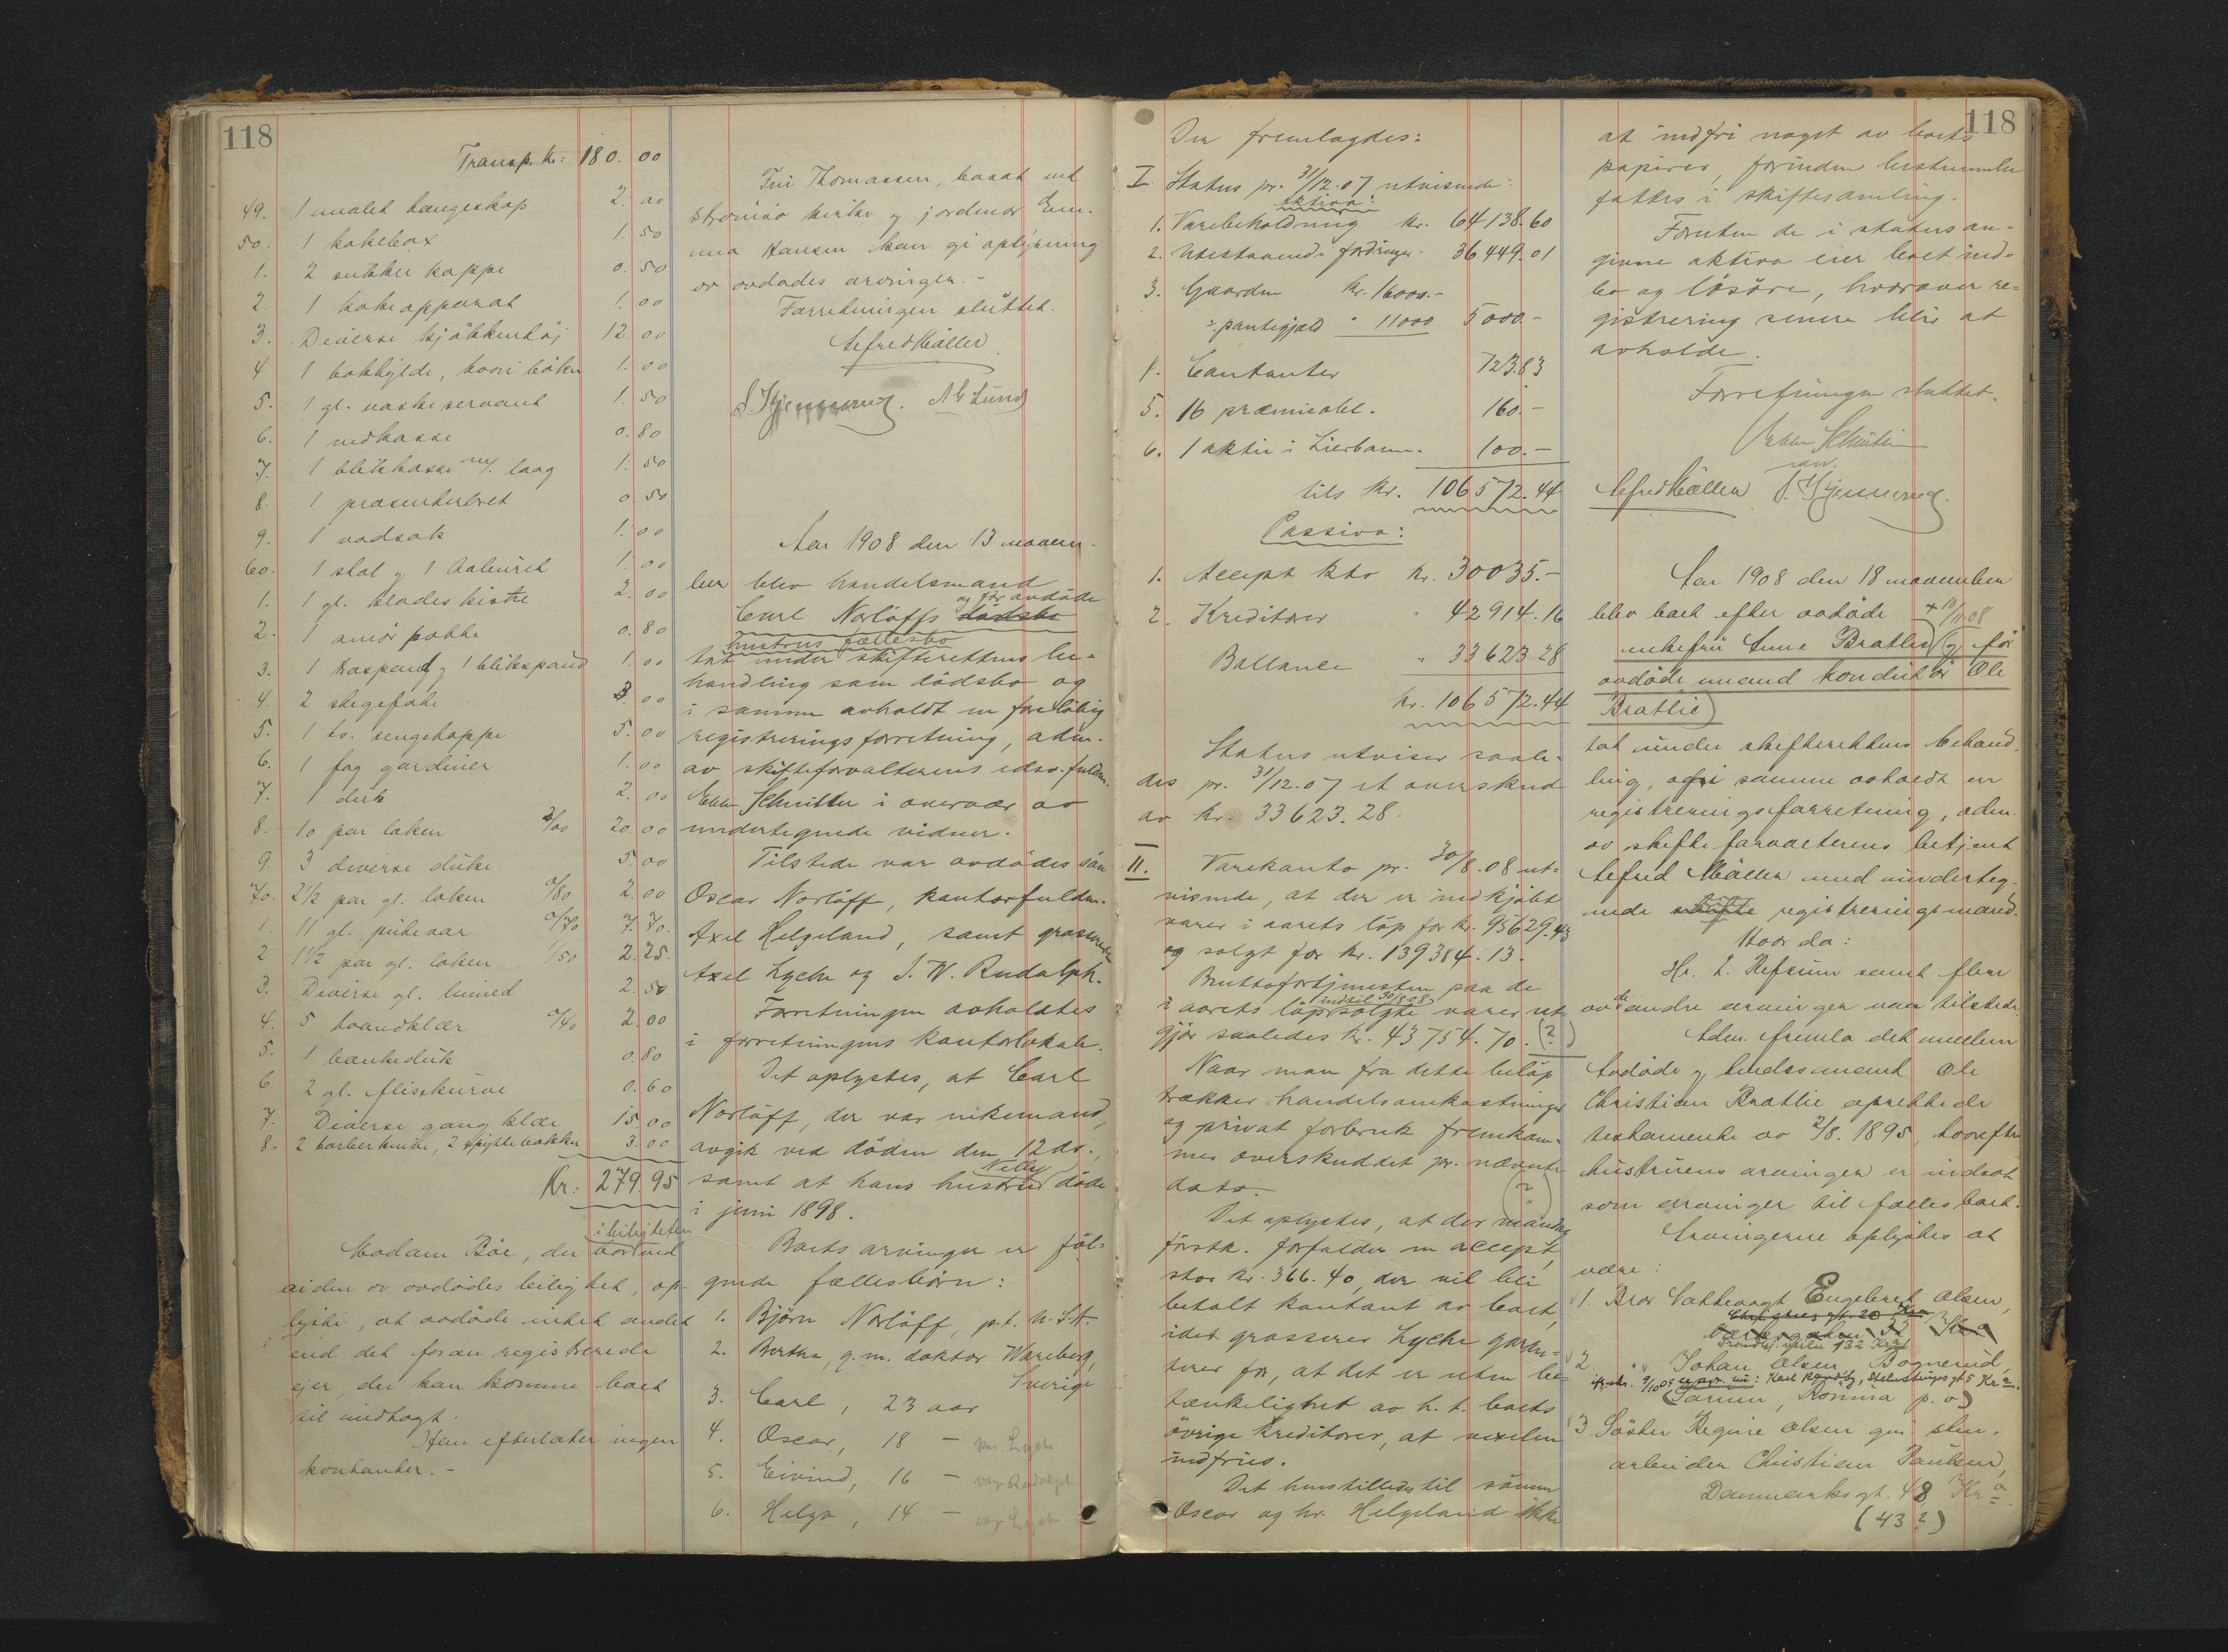 118
Transp. kr: 180.00
49. 1 malet hengeskap 2.00
50. 1 kokebox 1.50
1. 2 sukker koppe 0.50
2. 1 kokeapparat 1.00
3. Diverse kjøkkentøj 12.00
4 1 bokhylde, hvori bøker 1.00
5. 1 gl. vaskeservant 1.50
6. 1 vedkasse 0.80
7. 1 blikkasse m/ laag 1.50
8. 1 presenterbret 0.50
9. 1 vadsæk 1.00
60. 1 stol og 1 taburet 1.00
1. 1 gl. klædeskiste 2.00
2. 1 smørpotte 0.80
3. 1 kaspand og 1 blikspand 1.00
4. 2 stegefate 3.00
5. 1 to. sengetæppe 5.00
6. 1 fag gardiner 1.00
7. 1 duk 2.00
8. 10 par laken 2/00 20.00
9. 3 diverse duke 5.00
70. 2 1/2 par gl. laken 0/80 2.00
1. 11 gl. putevar 0/70 7.70.
2 1 1/2 par gl. laken 1/50 2.25.
3. Diverse gl. linned 2.50
4. 5 haandklær 0/40 2.00
5. 1 bænkeduk 0.80
6. 2 gl. flisekurve 0.60
7. Diverse gang klær 15.00
8. 2 barberknive, 2 spyttebakker 3.00
Kr: 279.95
i leiligheten
Madam Bøe, der bor ved
siden av avdødes leilighet, op-
lyste, at avdøde intet andet
end det foran registrerede
ejer, der kan komme boet
til indtægt.
Hun efterlater ingen
kontanter. -
Fru Thomassen, bosat ved
Strømsø kirke og jordmor Em-
ma Hansen kan gi oplysning
av avdødes arvinger. -
Forretningen sluttet.
Alfred Møller
S. Hjemmerud. A G Lund
Aar 1908 den 13 novem-
ber blev handelsmand
og før avdøde
Carl Norløffs dødsbo
hustrus fællesbo
tat under skifterettens be-
handling som dødsbo og
i samme avholdt en foreløbig
registreringsforretning, adm.
av skifteforvalterens edsv. fuldm.
Ebbe Schnitler i overvær av
undertegnede vidner.
Tilstede var avdødes søn
Oscar Norløff, kontorfuldm.
Axel Helgeland, samt grosserer
Axel Lyche og J. W. Rudolph.
Forretningen avholdtes
i forretningens kontorlokale.
Det oplystes, at Carl
Norløff, der var enkemand,
avgik ved døden den 12 ds.,
Nelly
samt at hans hustru døde
i juni 1898.
Boets arvinger er føl-
gende fællesbørn:
1. Bjørn Norløff, p.t. U.S.A.
2. Bertha, g.m. doktor Wareberg,
Sverige
3. Carl, 23 aar
4. Oscar, 18 — Lyche
5. Eivind, 16 — Rudolph
6. Helga, 14 — Lyche
118
Der fremlagdes:
I Status pr. 31/12.07 utvisende:
Aktiva:
1. Varebeholdning kr. 64138.60
2. Utestaaende fordringer. 36449.01
3. Gaarden kr. 16000.-
÷ pantegjæld " 11000 5000.-
4. Contanter 723.83
5. 16 præmieobl. 160.-
6. 1 aktie i Lierbanen. 100.-
tils kr. 106572.44
Passiva:
1. Accept kto kr. 30035.-
2. Kreditorer " 42914.16
Ballance " 33623.28
kr. 106572.44
Status utviser saale-
des pr. 31/12.07 et overskud
av kr. 33623.28.
II. Varekonto pr. 30/8.08 ut-
visende, at der er indkjøbt
varer i aarets løp for kr. 95629.43
og solgt for kr. 139384.13.
Bruttofortjenesten paa de
indtil 30/8 08
i aarets løp solgte varer ut-
gjør saaledes kr. 43754.70. (?)
Naar man fra dette beløp
trækker handelsomkostninger
og privat forbruk fremkom-
mer overskuddet pr. nævnte
dato.
Det oplystes, at der mandag
førstk. forfalder en accept,
stor kr. 366.40, der vil bli
betalt kontant av boet,
idet grosserer Lyche garan-
terer for, at det er uten be-
tænkelighet av h.t. boets
øvrige kreditorer, at vexelen
indfries.
Det henstilledes til sønnen
Oscar og hr. Helgeland ikke
118
at indfri noget av boets
papirer, forinden bestemmelse
fattes i skiftesamling.
Foruten de i status an-
givne aktiva eier boet ind-
bo og løsøre, hvorover re-
gistrering senere blir at
avholde.
Forretningen sluttet.
Ebbe Schnitler
Alfred Møller S. Hjemmerud.
Aar 1908 den 18 november
blev boet efter avdøde + 10/11 08
enkefru Anne Bratlie (og før
avdøde mand konduktør Ole
Bratlie)
tat under skifterettens behand-
ling, og i samme avholdt en
registreringsforretning, adm.
av skifteforvalterens betjent
Alfred Møller med underteg-
nede skifte registreringsmænd.
Hvor da:
Hr. L. Refsum samt flere
av de andre arvinger var tilstede.
Adm. fremla det mellem
avdøde og hendes mand Ole
Christian Bratlie oprettede
testamente av 2/8. 1895, hvorefter
hustruens arvinger er indsat
som arvinger til fællesboet.
Arvingerne oplystes at
være:
1. Bror Vaktvogt Engelbret Olsen,
Trondhj. veien 132 Kra
2. " Johan Olsen Bognerud,
Karl Rundby, Stelnstrups gt 5 Kra.
(Sørum, Romina p. o)
3. Søster Regine Olsen gm sten-
arbeider Christian Paulsen,
Danmarks gt. 48 Kra
(43?)